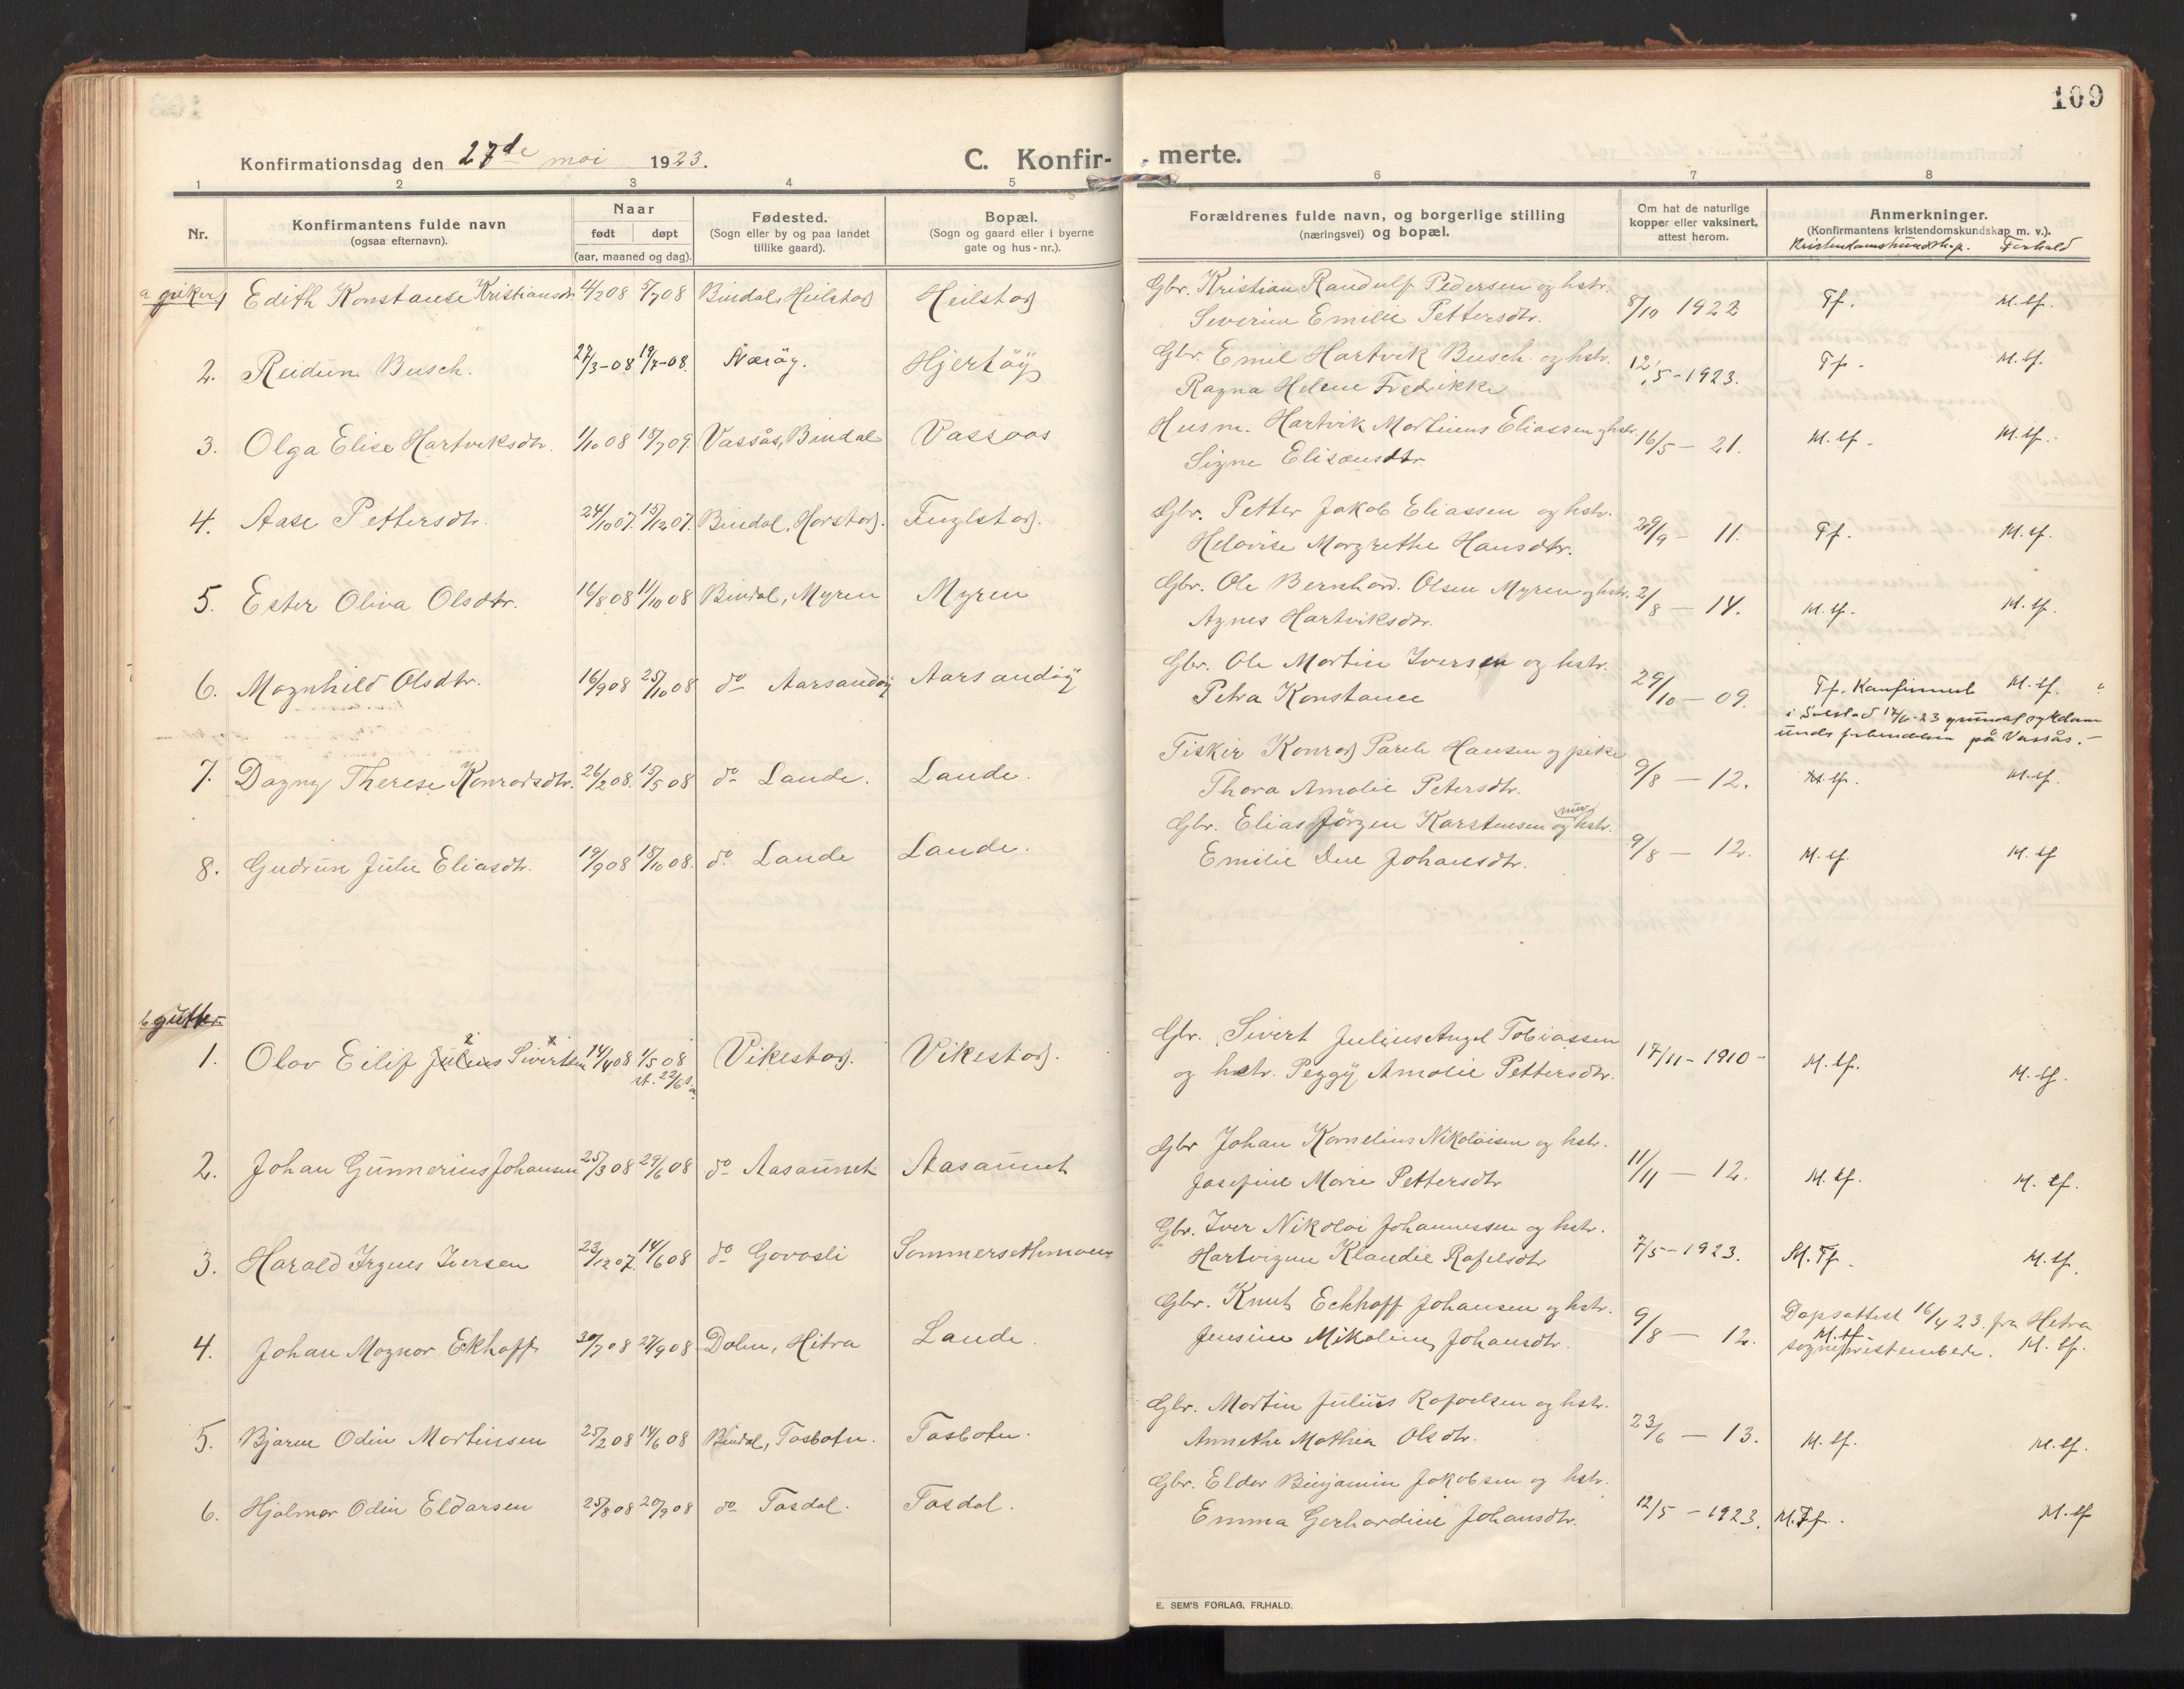 109
Konfirmationsdag den 27de mai 1923.
C. Konfir-
merte.
1 2 3 4 5 6 7 8
Nr.
Konfirmantens fulde navn
(ogsaa efternavn).
Naar
født døpt
(aar, maaned og dag).
Fødested.
(Sogn eller by og paa landet
tillike gaard).
Bopæl.
(Sogn og gaard eller i byerne
gate og hus-nr.).
Forældrenes fulde navn, og borgerlige stilling
(næringsvei) og bopæl.
Om hat de naturlige
kopper eller vaksinert,
attest herom.
Anmerkninger.
(Konfirmantens kristendomskundskap m. v.).
Kristendomskundskap. Forhold
a piker
1 Edith Konstanse Kristiansdtr. 4/2 08 5/7 08 Bindal, Heilstad Heilstad
Gbr. Kristian Randulf Pedersen og hstr.
Severine Emilie Pettersdtr.
8/10 1922 Tf. M. tf.
2. Reidun Busch. 27/3-08 19/7-08. Nærøy. Hjertøy
Gbr. Emil Hartvik Busch og hstr.
Ragna Helene Fredrikke
12/5-1923. Tf. M. tf.
3. Olga Elise Hartviksdtr. 1/10 08 18/7 09. Vassås, Bindal Vassaas
Husm. Hartvik Martinus Eliassen og hstr.
Signe Elisæusdtr.
16/5 - 21. M. tf. M. tf.
4. Aase Pettersdtr. 24/10 07. 15/12 07. Bindal, Horstad. Fuglstad.
Gbr. Petter Jakob Eliassen og hstr.
Helovise Margrethe Hansdtr.
29/9 - 11. Tf. M. tf.
5. Ester Oliva Olsdtr. 16/8 08 11/10 08 Bindal, Myren Myren
Gbr. Ole Bernhard Olsen Myren og hstr.
Agnes Hartviksdtr.
2/8 - 14. M. tf. M. tf.
6. Magnhild Olsdtr. 16/9 08 25/10 08 do Aarsandøy Aarsandøy
Gbr. Ole Martin Iversen og hstr.
Petra Konstance
29/10 - 09. Tf. Konfirmert M. tf.
i Solstad 17/6-23 grundet sykdom
under forbindelsen på Vassås.-
7. Dagny Therese Konradsdtr. 26/2 08. 15/5 08 do Lande. Lande.
Fisker Konrad Parelt Hansen og pike
Thora Amalie Petersdtr.
9/8 - 12. M. tf. M. tf.
8. Gudrun Julie Eliasdtr. 19/9 08 18/10 08. do. Lande Lande.
Gbr. Elias Jörgen Karstensen og hstr.
Emilie Dine Johansdtr.
9/8 - 12. M. tf. M. tf
b gutter
1. Olav Eilif Julius Sivertsen 14/4 08 1/5 08 Vikestad. Vikestad.
st. 22/6 s.a.
Gbr. Sivert Julius Angel Tobiassen
og hstr. Peggy Amalie Pettersdtr.
17/11-1910- M. tf. M. tf.
2. Johan Gunnerius Johansen 25/3 08 29/6 08 do Aasaunet Aasaunet
Gbr Johan Kornelius Nikolaisen og hstr.
Josefine Marie Pettersdtr
11/11 - 12. M. tf. M. tf.
3. Harald Irgens Iversen 23/12 07. 14/6 08 do Gaaosli
Gbr. Iver Nikolai Johannessen og hstr.
Hartvigine Klaudie Rafelsdtr
7/5-1923. M. Tf. M. tf.
4. Johan Magnor Ekhoff 30/7 08 27/9 08 Dolm, Hitra Lande.
Gbr. Knut Eckhoff Johansen og hstr.
Jensine Mikaline Johansdtr.
9/8 - 12. Dapsattest 16/4 23. fra Hitra
sogneprestembede. M. tf. M. tf.
5. Bjarne Odin Martinsen 25/2 08 14/6 08 Bindal, Tosbotn. Tosbotn.
Gbr. Martin Julius Rafaelsen og hstr.
Annethe Mathea Olsdtr.
23/6 - 13. M. tf. M. tf.
6. Hjalmar Odin Eldarsen 25/8 08 20/9 08 do Tosdal. Tosdal.
Gbr. Eldor Binjamin Jakobsen og hstr.
Emma Gerhardine Johansdtr.
12/5-1923. M. Tf. M. tf
E. SEM'S FORLAG, FR.HALD.